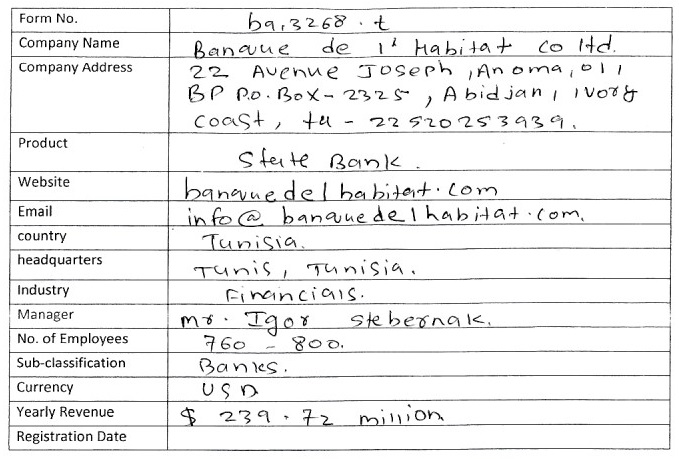 Form No. ba,3268.t
Company Name Banque de l' Habitat co ltd.
Company Address 22 Avenue Joseph, Anoma, 011
BP P.O.Box-2325, Abidjan, Ivory
coast, tu-22520253939.
Product State Bank.
Website banquedelhabitat.com
Email info@banquedelhabitat.com.
country Tunisia.
headquarters Tunis, Tunisia.
Industry Financials.
Manager mr. Igor stebernak.
No. of Employees 760 - 800.
Sub-classification Banks.
Currency USD
Yearly Revenue $ 239.72 million
Registration Date